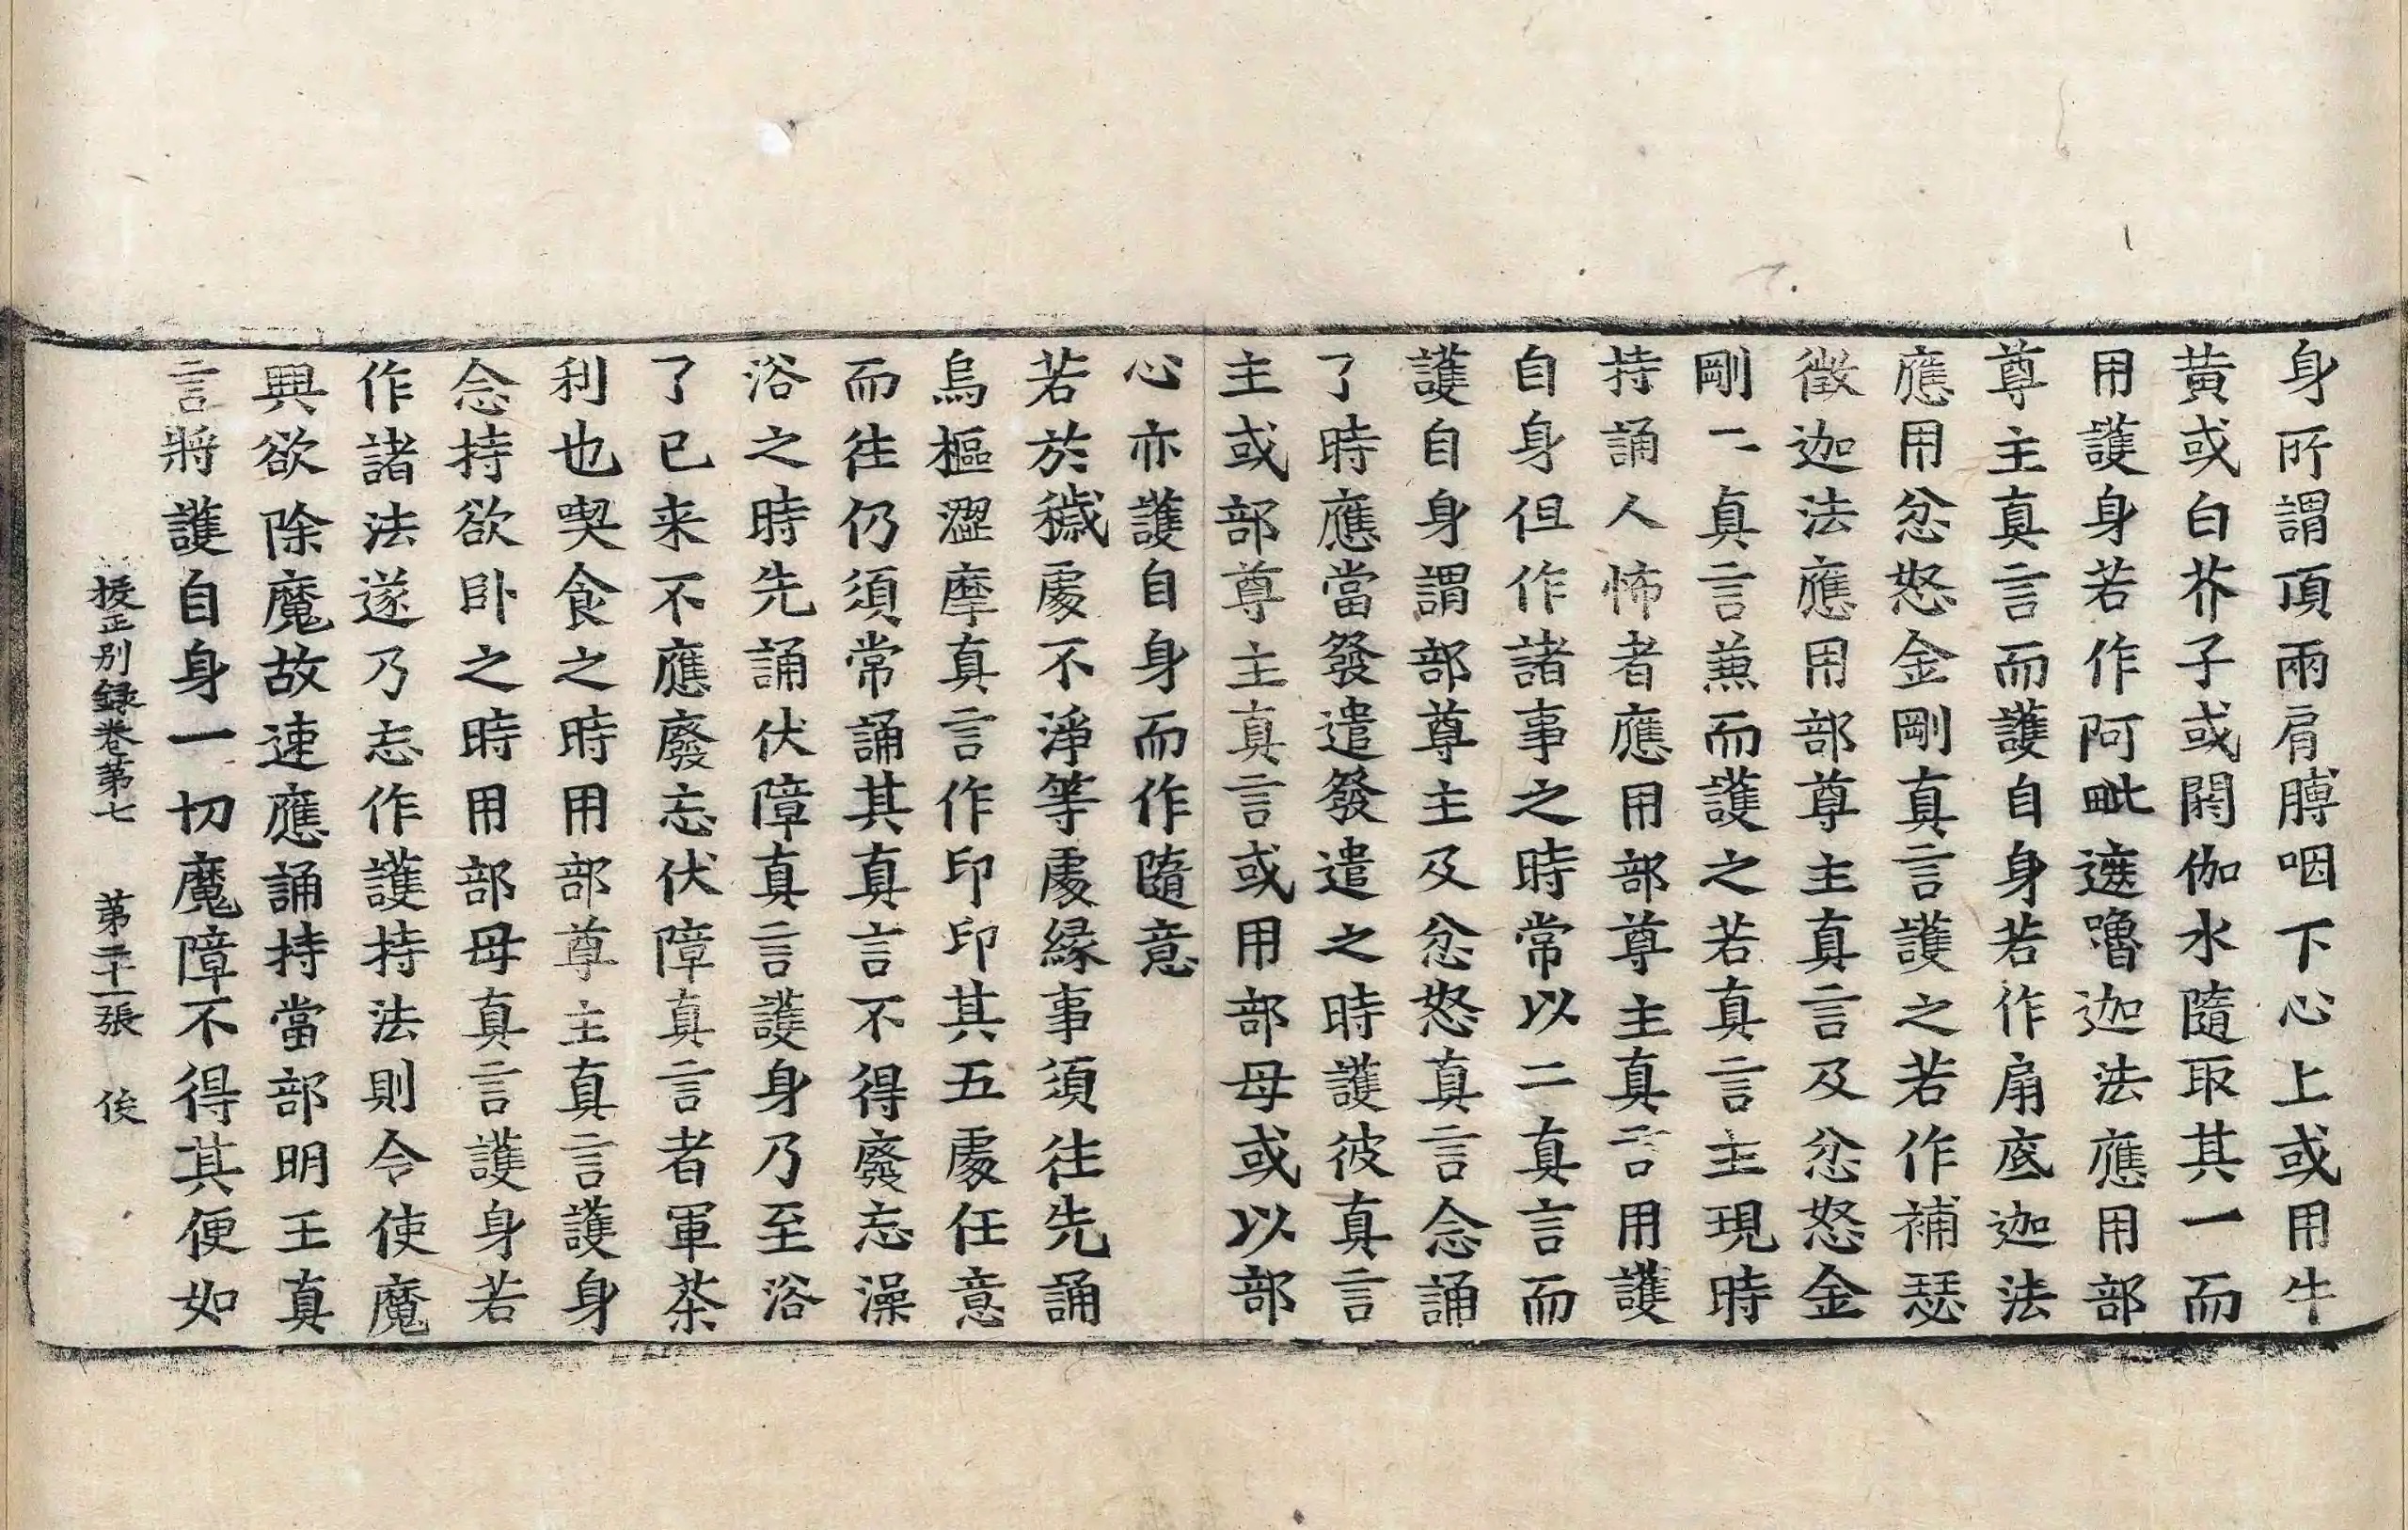 身所謂頂兩肩膊咽下心上或用牛
黃或白芥子或閼伽水隨取其一而
用護身若作阿毗遮嚕迦法應用部
尊主真言而護自身若作扇底迦法
應用忿怒金剛真言護之若作補瑟
徵迦法應用部尊主真言及忿怒金
剛二真言兼而護之若真言主現時
持誦人怖者應用部尊主真言用護
自身但作諸事之時常以二真言而
護自身謂部尊主及忿怒真言念誦
了時應當發遣發遣之時護彼真言
主或部尊主真言或用部母或以部
心亦護自身而作隨意
若於穢處不淨等處緣事須往先誦
烏樞澀摩真言作印印其五處任意
而往仍須常誦其真言不得廢忘澡
浴之時先誦伏障真言護身乃至浴
了已来不應廢忘伏障真言者軍茶
利也喫食之時用部尊主真言護身
念持欲卧之時用部母真言護身若
作諸法遂乃志作護持法則令使魔
興欲除魔故速應誦持當部明王真
言將護自身一切魔障不得其便如
挍正別録卷第七　第二十一張　俊